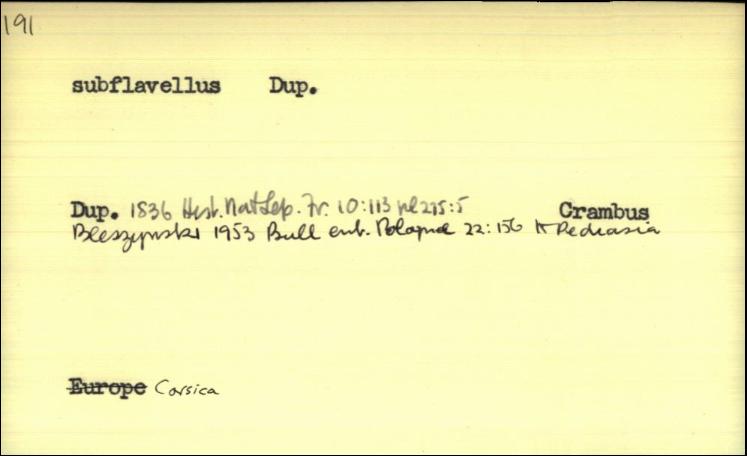 191
subflavellus Dup.
Dup. 1836 Hist. Nat Lep. Fr. 10:113 pl 275:5 Crambus
Bleszynski 1953 Bull ent. Pologne 22:156 Pediasia
Europe Corsica